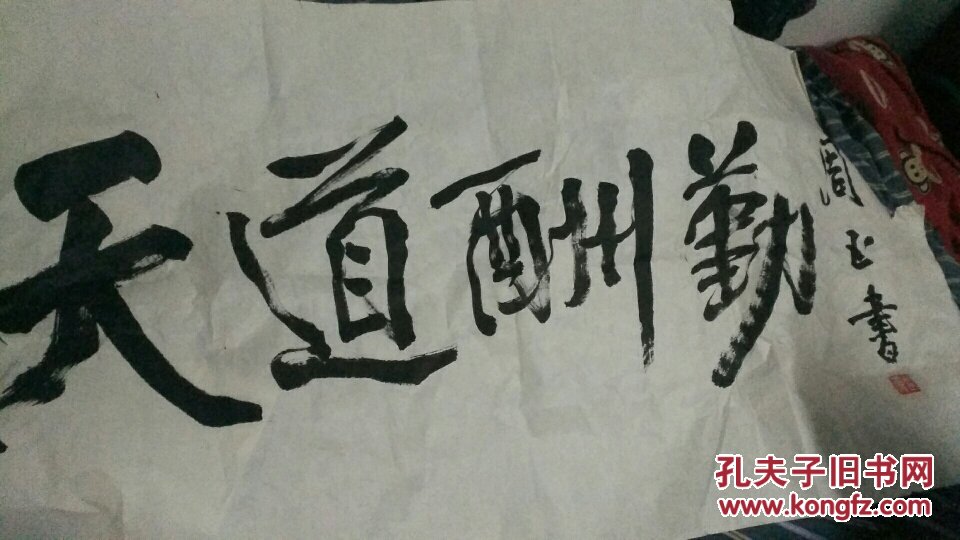 天道酬勤
周玉書
孔夫子旧书网
www.kongfz.com